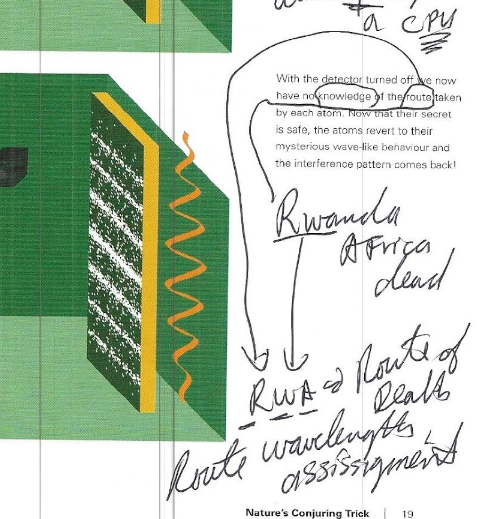 a CPU
With the detector turned off we now
have no knowledge of the route taken
by each atom. Now that their secret
is safe, the atoms revert to their
mysterious wave-like behaviour and
the interference pattern comes back!
Rwanda
Africa
dead
RWA => Route of
Death
Route wavelengths
assissigment
Nature's Conjuring Trick | 19